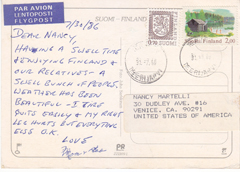 PAR AVION
LENTOPOSTI
FLYGPOST
SUOMI - FINLAND
7/30/86
DEAR NANCY,
HAVING A SWELL TIME
ENJOYING FINLAND &
OUR RELATIVES - A
SWELL BUNCH OF PEOPLE.
WEATHER HAS BEEN
BEAUTIFUL - I TIRE
QUITE EASILY & MY RIGHT
LEG HURTS EVERYTHING
ELSE O.K.
LOVE
SUOMI
Finland
NANCY MARTELLI
30 DUDLEY AVE. #16
VENICE, CA. 90291
UNITED STATES OF AMERICA